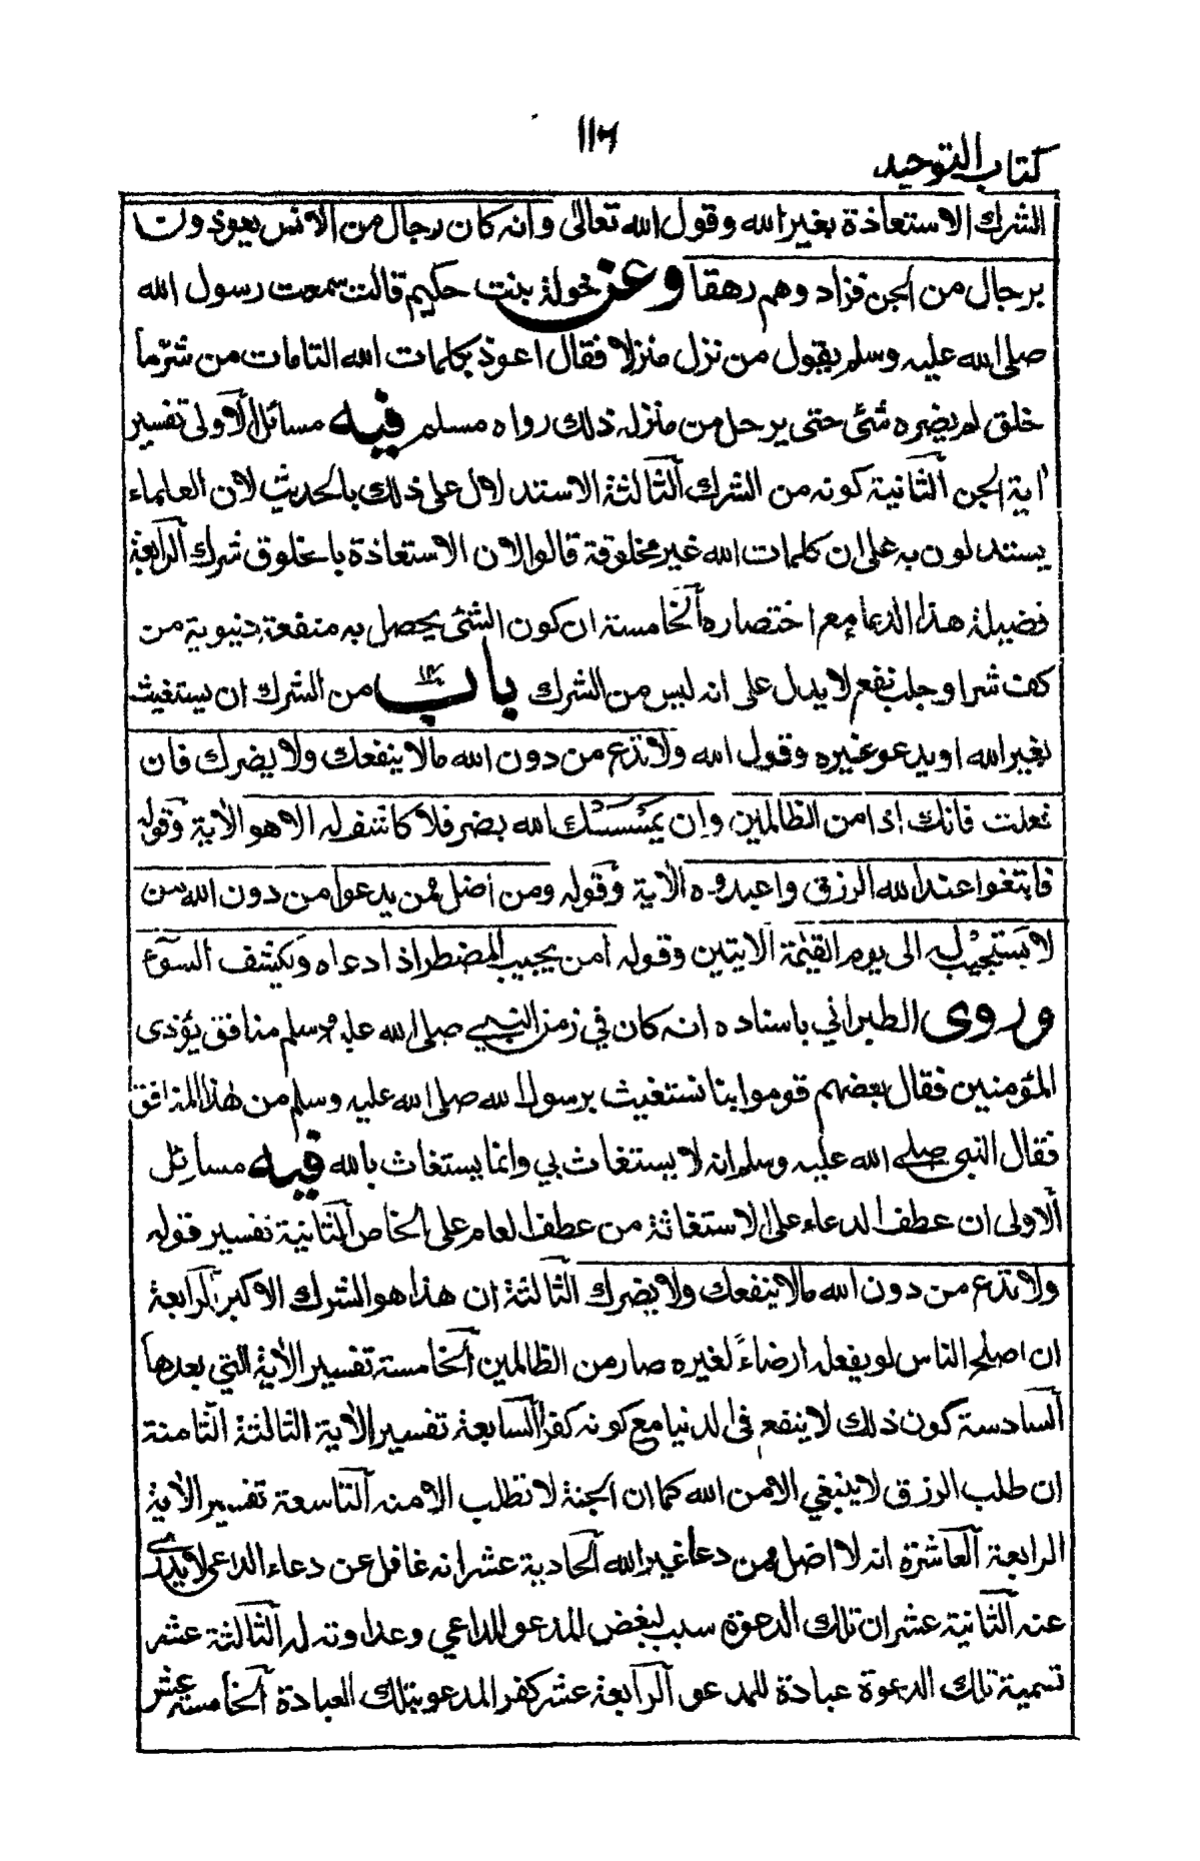 ١١٦
كتاب التوحيد
الشرك الاستعاذة بغير الله وقول الله تعالى وانه كان رجال من الانس يعوذون
برجال من الجن فزادوهم رهقا وعن خولة بنت حكيم قالت سمعت رسول الله
صلى الله عليه وسلم يقول من نزل منزلا فقال اعوذ بكلمات الله التامات من شر ما
خلق لم يضره شئ حتى يرحل من منزله ذلك رواه مسلم فيه مسائل الاولى تفسير
اية الجن الثانية كونه من الشرك الثالثة الاستدلال على ذلك بالحديث لان العلماء
يستدلون به على ان كلمات الله غير مخلوقة قالوا لان الاستعاذة بالمخلوق شرك الرابعة
فضيلة هذا الدعاء مع اختصاره الخامسة ان كون الشئ يحصل به منفعة دنيوية من
كف شر او جلب نفع لا يدل على انه ليس من الشرك باب من الشرك ان يستغيث
بغير الله او يدعو غيره وقول الله ولا تدع من دون الله مالا ينفعك ولا يضرك فان
فعلت فانك اذا من الظالمين وان يمسسك الله بضر فلا كاشف له الا هو الأية وقوله
فابتغوا عند الله الرزق واعبدوه الأية وقوله ومن اضل ممن يدعوا من دون الله من
لا يستجيب له الى يوم القيمة الايتين وقوله امن يجيب المضطر اذا دعاه ويكشف السوء
وروى الطبراني باسناده انه كان في زمن النبي صلى الله عليه وسلم منافق يؤذى
المؤمنين فقال بعضهم قوموا بنا نستغيث برسول الله صلى الله عليه وسلم من هذا المنافق
فقال النبي صلى الله عليه وسلم انه لا يستغاث بي وانما يستغاث بالله فيه مسائل
الاولى ان عطف الدعاء على الاستغاثة من عطف العام على الخاص الثانية تفسير قوله
ولا تدع من دون الله مالا ينفعك ولا يضرك الثالثة ان هذا هو الشرك الاكبر الرابعة
ان اصلح الناس لو يفعله ارضاءً لغيره صار من الظالمين الخامسة تفسير الأية التي بعدها
السادسة كون ذلك لا ينفع في الدنيا مع كونه كفرا السابعة تفسير الأية الثالثة الثامنة
ان طلب الرزق لا ينبغي الا من الله كما ان الجنة لا تطلب الا منه التاسعة تفسير الأية
الرابعة العاشرة انه لا اضل ممن دعا غير الله الحادية عشر انه غافل عن دعاء الداعى لا يدرى
عنه الثانية عشر ان تلك الدعوة سبب لبغض المدعو للداعي وعداوته له الثالثة عشر
تسمية تلك الدعوة عبادة للمدعو الرابعة عشر كفر المدعو بتلك العبادة الخامسة عشر